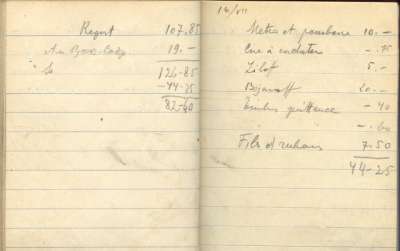 Report 107.85
Au Bon-Coin 19.-
126-85
-44-25
82-60
14/VII
Métro et pourboire 10.-
Cire à cacheter -.75
Zilof 5.-
Bojanoff 20.-
Timbre quittance -40
-.60
Fils et rubans 7.50
44-25